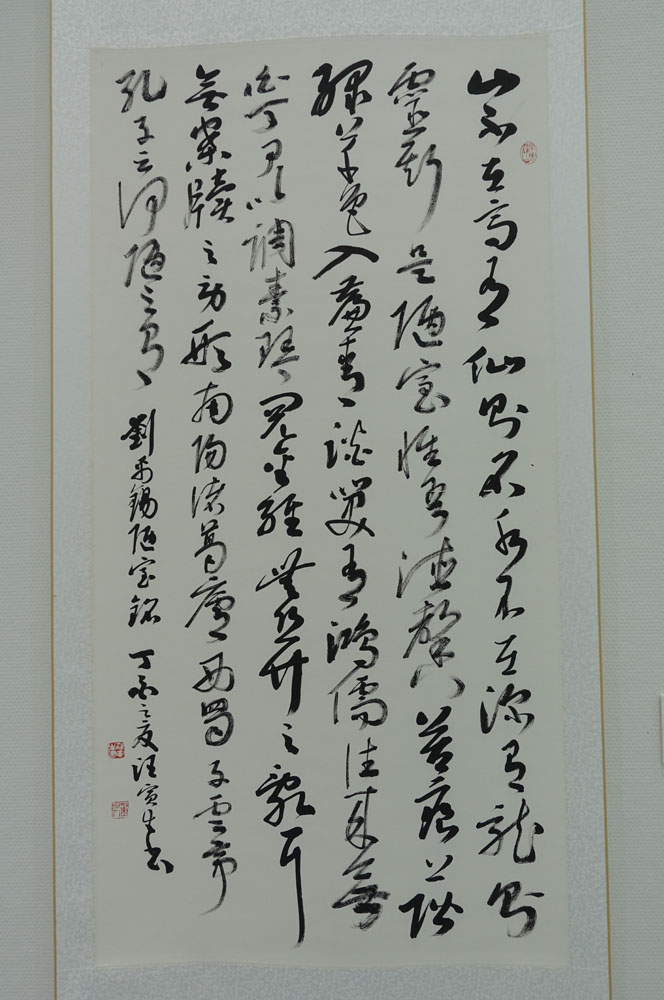 山不在高有仙則名水不在深有龍則
靈斯是陋室惟吾德馨苔痕上階
綠草色入簾青談笑有鴻儒往來無
白丁可以調素琴閱金經無絲竹之亂耳
無案牘之勞形南陽諸葛廬西蜀子雲亭
孔子云何陋之有
劉禹錫陋室銘 之夏汪寅生書